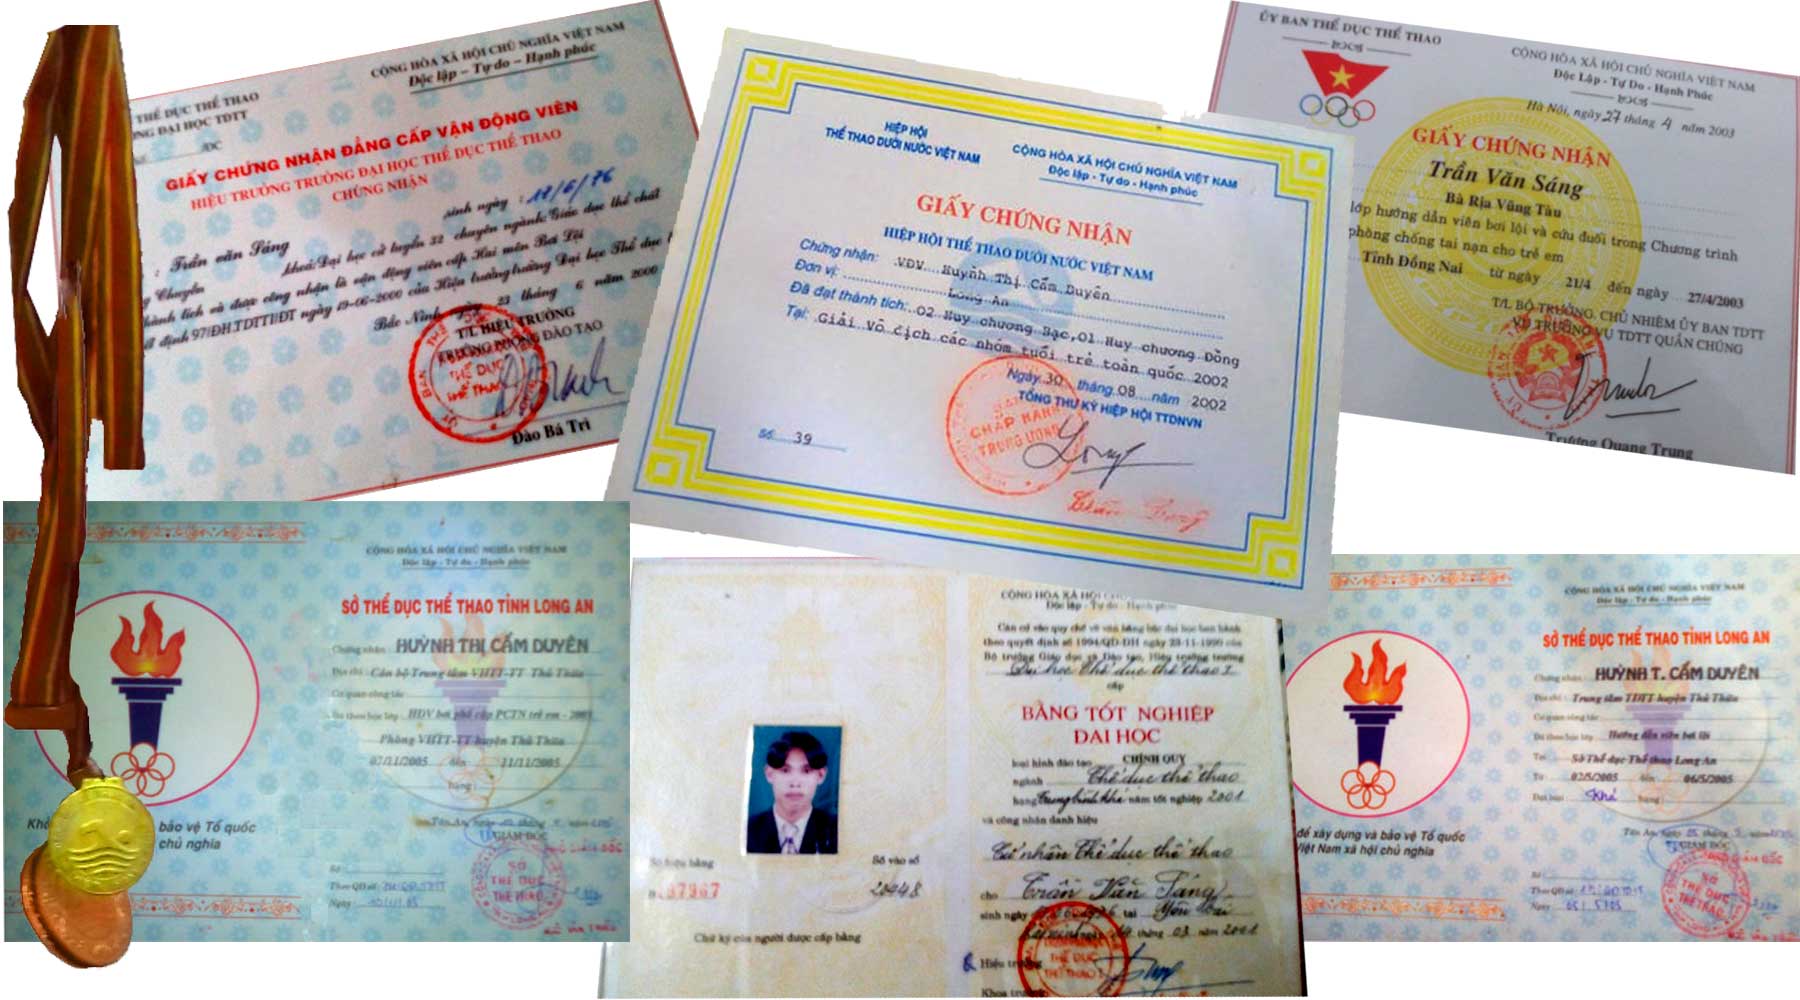 THỂ DỤC THỂ THAO
ĐẠI HỌC TDTT
CỘNG HÒA XÃ HỘI CHỦ NGHĨA VIỆT NAM
Độc lập – Tự do – Hạnh phúc
/ĐC
GIẤY CHỨNG NHẬN ĐẲNG CẤP VẬN ĐỘNG VIÊN
HIỆU TRƯỞNG TRƯỜNG ĐẠI HỌC THỂ DỤC THỂ THAO
CHỨNG NHẬN
: Trần văn Sáng sinh ngày :
khoá: Đại học cử tuyển 32 chuyên ngành: Giáo dục thể chất
Chuyền
thành tích và được công nhận là vận động viên cấp Hai môn Bơi Lội
định 97/ĐH.TDTTI/ĐT ngày 19-06-2000 của Hiệu trưởng trường Đại học Thể dục
Bắc Ninh, Ngày 23 tháng 6 năm 2000
T/L HIỆU TRƯỞNG
TRƯỞNG PHÒNG ĐÀO TẠO
THỂ DỤC
THỂ THAO
Đào Bá Trì
HIỆP HỘI
THỂ THAO DƯỚI NƯỚC VIỆT NAM
CỘNG HÒA XÃ HỘI CHỦ NGHĨA VIỆT NAM
Độc lập - Tự do - Hạnh phúc
GIẤY CHỨNG NHẬN
HIỆP HỘI THỂ THAO DƯỚI NƯỚC VIỆT NAM
Chứng nhận: VĐV Huỳnh Thị Cẩm Duyên
Đơn vị: Long An
Đã đạt thành tích: 02 Huy chương Bạc, 01 Huy chương Đồng
Tại: Giải Vô địch các nhóm tuổi trẻ toàn quốc 2002
Ngày 30 tháng 08 năm 2002
TỔNG THƯ KÝ HIỆP HỘI TTDNVN
BAN
CHẤP HÀNH
TRUNG ƯƠNG
Số 39
ỦY BAN THỂ DỤC THỂ THAO
CỘNG HÒA XÃ HỘI CHỦ NGHĨA VIỆT NAM
Độc Lập - Tự Do - Hạnh Phúc
Hà Nội, ngày 27 tháng 4 năm 2003
GIẤY CHỨNG NHẬN
Trần Văn Sáng
Bà Rịa Vũng Tàu
lớp hướng dẫn viên bơi lội và cứu đuối trong Chương trình
phòng chống tai nạn cho trẻ em
Tỉnh Đồng Nai từ ngày 21/4 đến ngày 27/4/2003
T/L BỘ TRƯỞNG, CHỦ NHIỆM ỦY BAN TDTT
VỤ TRƯỞNG VỤ TDTT QUẦN CHÚNG
Trương Quang Trung
CỘNG HÒA XÃ HỘI CHỦ NGHĨA VIỆT NAM
Độc lập - Tự do - Hạnh phúc
SỞ THỂ DỤC THỂ THAO TỈNH LONG AN
Chứng nhận: HUỲNH THỊ CẨM DUYÊN
Địa chỉ: Cán bộ Trung tâm VHTT-TT Thủ Thừa
Cơ quan công tác
Đã theo học lớp: HDV bơi phổ cập PCTN trẻ em - 2005
Phòng VHTT-TT huyện Thủ Thừa
07/11/2005 đến 11/11/2005
Hạng:
bảo vệ Tổ quốc
chủ nghĩa
GIÁM ĐỐC
SỞ
THỂ DỤC
THỂ THAO
Số:
Theo QĐ số
Ngày
CỘNG HÒA XÃ HỘI CHỦ
Độc lập - Tự do - Hạnh phúc
Căn cứ vào quy chế về văn bằng bậc đại học ban hành
theo quyết định số 1994/QĐ-ĐH ngày 23-11-1990 của
Bộ trưởng Giáo dục và Đào tạo, Hiệu trưởng trường
Đại học Thể dục thể thao I
cấp
BẰNG TỐT NGHIỆP
ĐẠI HỌC
loại hình đào tạo CHÍNH QUY
ngành Thể dục thể thao
hạng Trung bình khá năm tốt nghiệp 2001
và công nhận danh hiệu
Cử nhân Thể dục thể thao
cho Trần Văn Sáng
sinh ngày tại
ngày tháng 03 năm 2001
Hiệu trưởng
THỂ DỤC
THỂ THAO I
Số hiệu bằng
Số vào sổ
20448
Chữ ký của người được cấp bằng
CỘNG HÒA XÃ HỘI CHỦ NGHĨA VIỆT NAM
Độc lập - Tự do - Hạnh phúc
SỞ THỂ DỤC THỂ THAO TỈNH LONG AN
Chứng nhận: HUỲNH T. CẨM DUYÊN
Địa chỉ: Trung tâm TDTT huyện Thủ Thừa
Cơ quan công tác
Đã theo học lớp: Hướng dẫn viên bơi lội
Tại: Sở Thể dục Thể thao Long An
Từ 02/5/2005 đến 06/5/2005
Đạt loại: Khá Hạng:
để xây dựng và bảo vệ Tổ quốc
Việt Nam xã hội chủ nghĩa
GIÁM ĐỐC
SỞ
THỂ DỤC
THỂ THAO
Số:
Theo QĐ số
Ngày